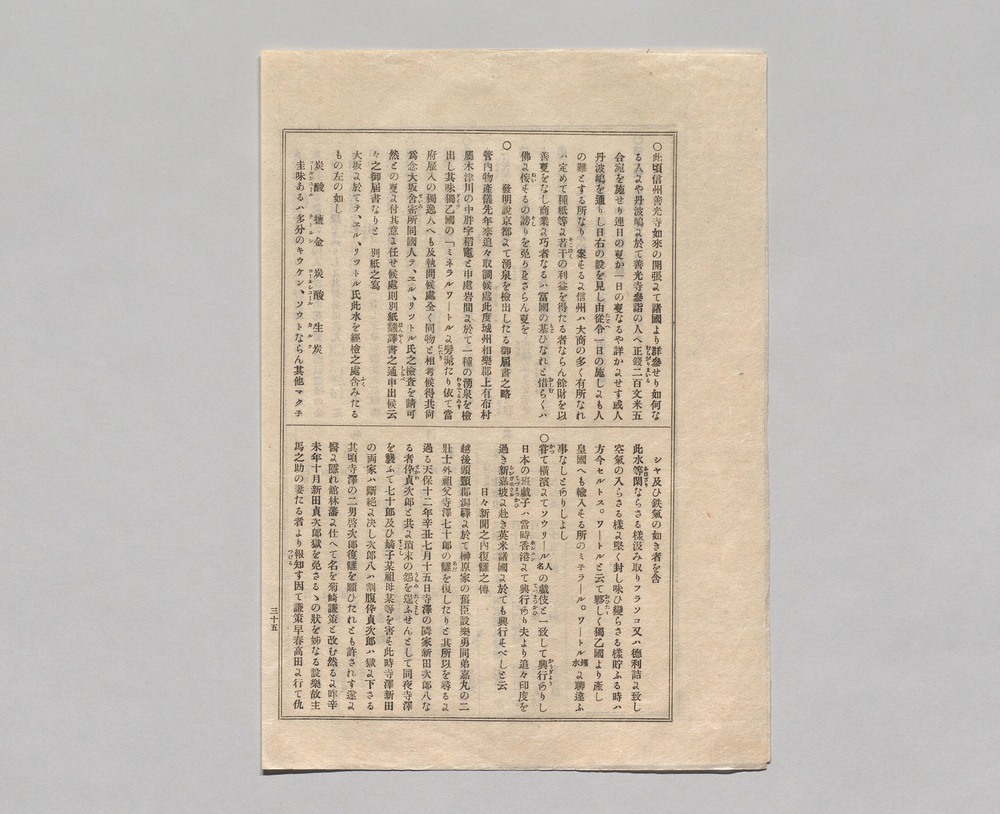 〇此頃信州善光寺如來の開張よて諸國より群參せり如何な
る人よや丹波嶋よ於て善光寺參詣の人へ正錢二百文米五
合宛を施せり連日の夏か一日の夏なるや詳かよせす或人
丹波嶋を通りし日右の設を見し由從令一日の施しよも人
の難とする所なり 案そるよ信州ハ大商の多く有所なれ
ハ定めて種紙等よ若干の利益を得たる者ならん餘財を以
善夏をなし商業よ巧者なるハ冨國の基ひなれと惜らくハ
佛よ侫そるの謗りを免りをさらん夏を
〇 發明說京都よて湧泉を檢出したる御屆書之略
管內物產儀先年來追々取調候處此度城州相樂郡上有市村
屬木津川の中胖字稻竈と申處岩間よ於て一種の湧泉を檢
出し其味獨乙國の「ミネラルワートルよ髣髴たり依て當
府雇入の獨逸人へも及執問候處全く同物と相考候得共尙
爲念大坂舍密所同國人ヲ、ヱル、リツトル氏之檢査を請可
然との夏よ付其意よ任せ候處則別紙飜譯書之通申出候云
々之御屆書なりと 別紙之寫
大坂よ於てヲ、ヱル、リツトル氏此水を經檢之處含みたる
もの左の如し
炭酸 塩金 炭酸 生炭
圭味あるハ多分のキウケン、ソウトならん其他マクチ
シヤ及ひ鉄氣の如き者を含
此水等閑ならさる樣汲み取りフラソコ又ハ德利詰よ致し
空氣の入らさる樣よ堅く封し味ひ變らさる樣貯ふる時ハ
方今セルトス。ワートルと云て夥しく獨乙國より產し
皇國へも輸入そる所のミチラール。ワートル鑛水よ聊違ふ
事なしとありしよし
〇甞て橫濱よてソウリール人名の戲伎と一致して興行ありし
日本の班戲子ハ當時香港よて興行あり夫より追々印度を
過き新嘉坡よ赴き英米諸國よ於ても興行そべしと云
日々新聞之內復讎之傳
越後頭頸郡潟驛よ於て榊原家の舊臣設樂勇同弟嘉丸の二
壯士外祖父寺澤七十郎の讎を復したりと其所以を尋るよ
過る天保十二年辛丑七月十五日寺澤の隣家新田次郎八な
る者伜貞次郎と共よ瑣末の怨を遥ふせんとして同夜寺澤
を襲ふて七十郎及ひ嫡子某祖母某等を害そ此時寺澤新田
の兩家ハ斷絕よ決し次郎八ハ割腹伜貞次郎ハ獄よ下さる
其頃寺澤の二男啓次郎復讎を願ひたれとも許されす遂よ
醫よ隱れ舘林藩よ仕へて名を菊崎謙策と改む然るよ昨辛
未年十月新田貞次郎獄を免さるゝの狀を姊なる設樂故主
馬之助の妻たる者より報知す因て謙策早春高田よ行て仇
三十五